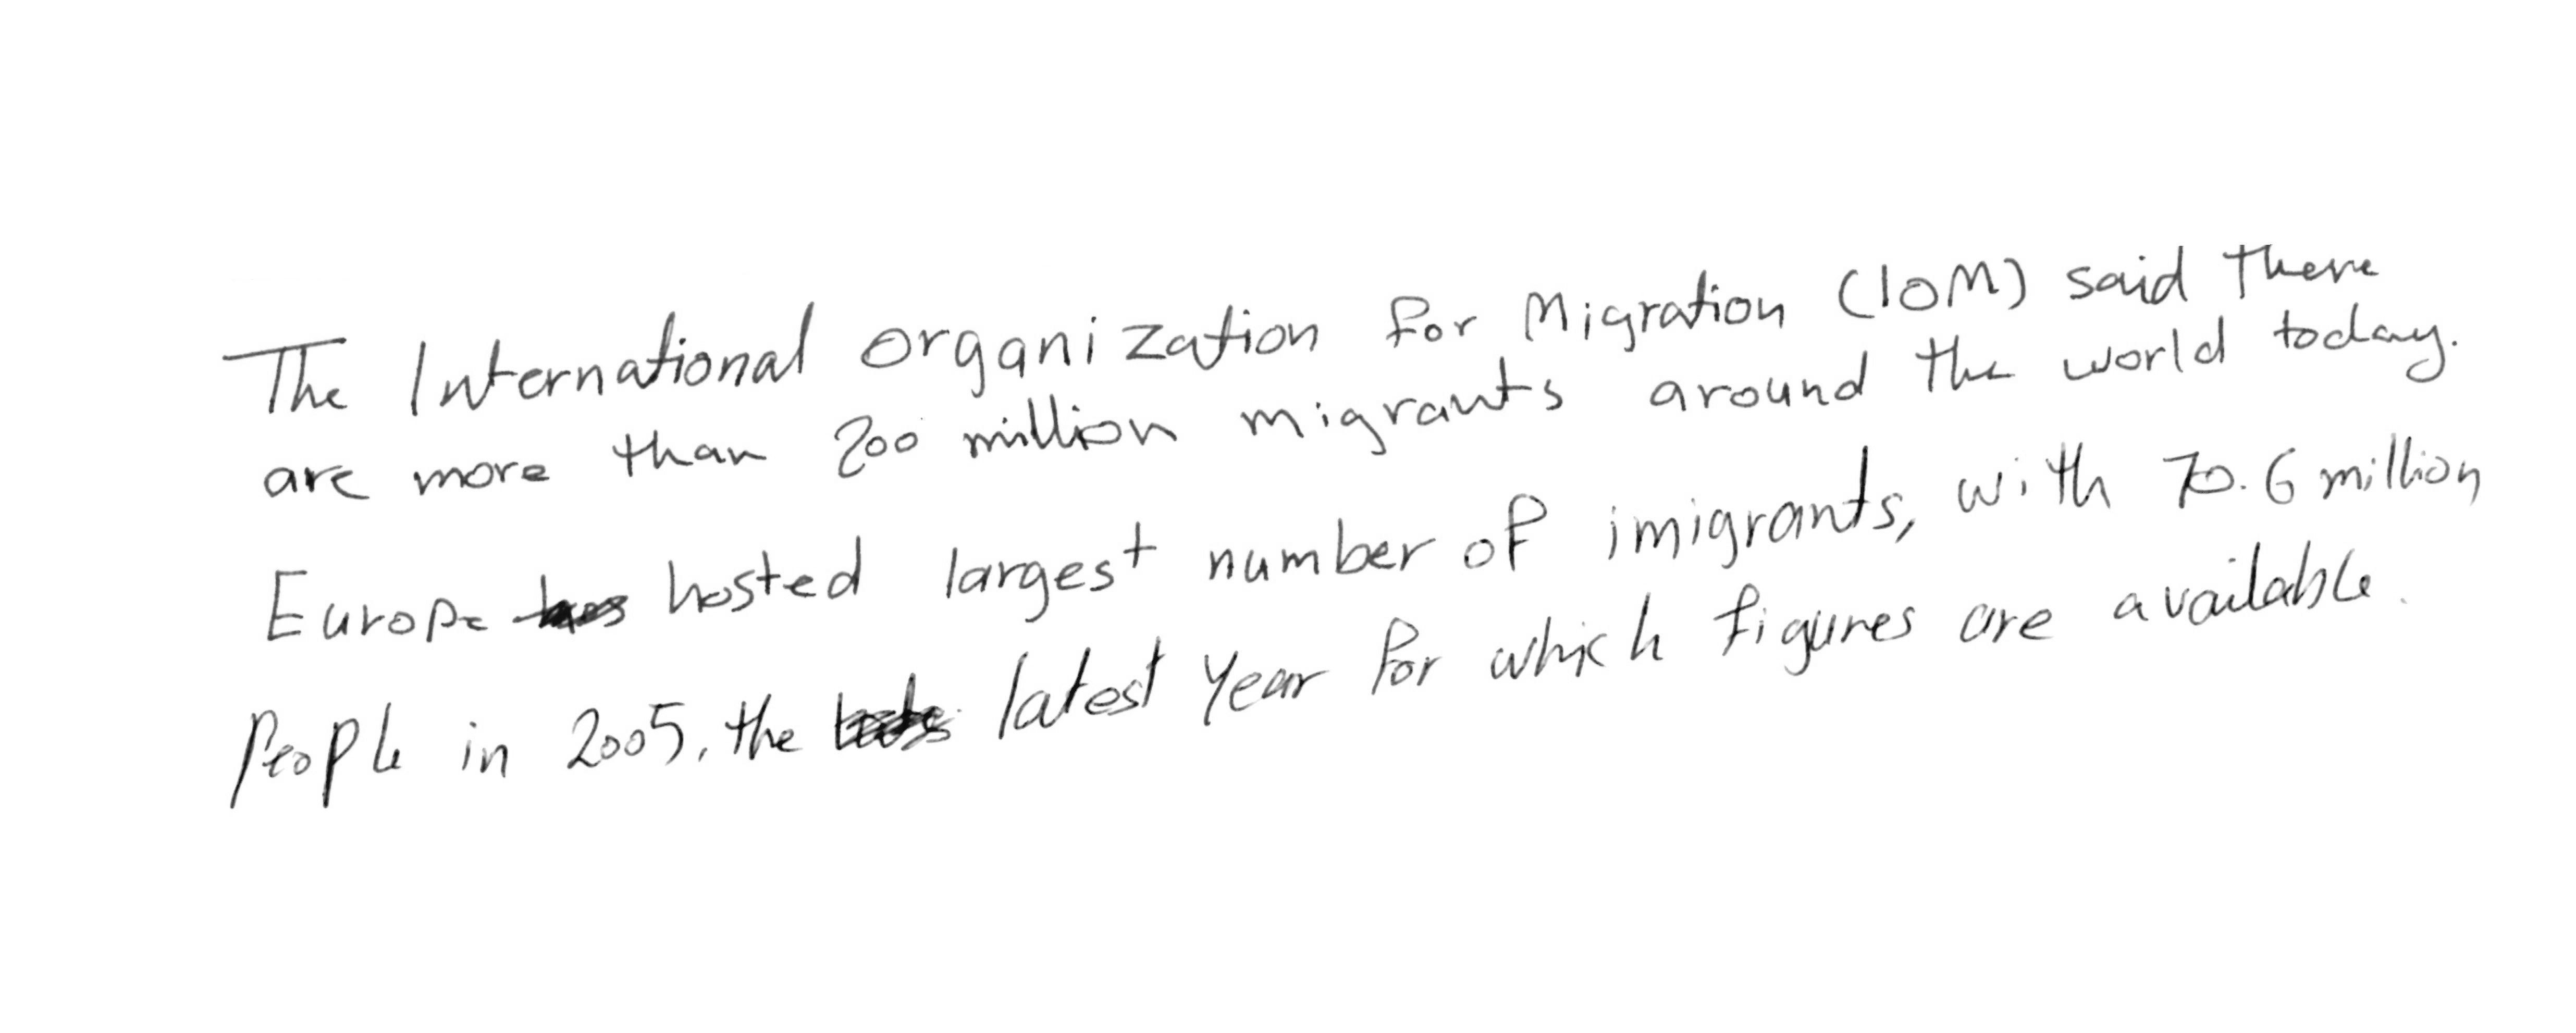 The International organization for Migration (IOM) said there
are more than 200 million migrants around the world today.
Europe hosted largest number of imigrants, with 70.6 million
People in 2005, the latest year for which figures are available.